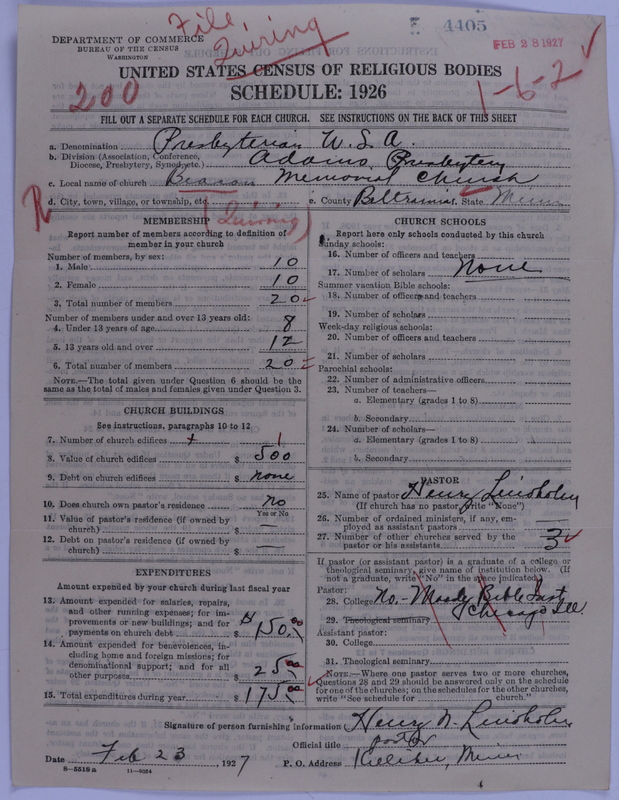 4405
FEB 28 1927
File,
Quiring
DEPARTMENT OF COMMERCE
BUREAU OF THE CENSUS
WASHINGTON
UNITED STATES CENSUS OF RELIGIOUS BODIES
SCHEDULE: 1926
200
1-6-2
FILL OUT A SEPARATE SCHEDULE FOR EACH CHURCH. SEE INSTRUCTIONS ON THE BACK OF THIS SHEET
a. Denomination Presbyterian U.S.A.
b. Division (Association, Conference, Diocese, Presbytery, Synod, etc.) Adams Presbytery
c. Local name of church Memorial Church
d. City, town, village, or township, etc. (Quiring) e. County Beltrami State Minn
MEMBERSHIP
Report number of members according to definition of
member in your church
Number of members, by sex:
1. Male 10
2. Female 10
3. Total number of members 20
Number of members under and over 13 years old:
4. Under 13 years of age 8
5. 13 years old and over 12
6. Total number of members 20
NOTE.—The total given under Question 6 should be the
same as the total of males and females given under Question 3.
CHURCH BUILDINGS
See instructions, paragraphs 10 to 12
7. Number of church edifices 1
8. Value of church edifices $ 500
9. Debt on church edifices $ none
10. Does church own pastor's residence no
Yes or No
11. Value of pastor's residence (if owned by
church) $ —
12. Debt on pastor's residence (if owned by
church) $ —
EXPENDITURES
Amount expended by church during last fiscal year
13. Amount expended for salaries, repairs,
and other running expenses; for im-
provements or new buildings; and for
payments on church debt $ 150.00
14. Amount expended for benevolences, in-
cluding home and foreign missions; for
denominational support; and for all
other purposes $ 25.00
15. Total expenditures during year $ 175.00
CHURCH SCHOOLS
Report here only schools conducted by this church
Sunday schools:
16. Number of officers and teachers
17. Number of scholars None
Summer vacation Bible schools:
18. Number of officers and teachers
19. Number of scholars
Week-day religious schools:
20. Number of officers and teachers
21. Number of scholars
Parochial schools:
22. Number of administrative officers
23. Number of teachers—
a. Elementary (grades 1 to 8)
b. Secondary
24. Number of scholars—
a. Elementary (grades 1 to 8)
b. Secondary
PASTOR
25. Name of pastor Henry Lindholm
(If church has no pastor, write "None")
26. Number of ordained ministers, if any, em-
ployed as assistant pastors —
27. Number of other churches served by the
pastor or his assistants 3
If pastor (or assistant pastor) is a graduate of a college or
theological seminary, give name of institution below. (If
not a graduate, write "No" in the space indicated)
Pastor:
28. College No. Moody Bible Inst
Chicago Ill.
29. Theological seminary
Assistant pastor:
30. College
31. Theological seminary
NOTE.—Where one pastor serves two or more churches,
Questions 28 and 29 should be answered only on the schedule
for one of the churches; on the schedules for the other churches,
write "See schedule for church."
Signature of person furnishing information Henry N. Lindholm
Official title pastor
Date Feb 23, 1927 P. O. Address Kelliher, Minn
8-5518a 11-9264